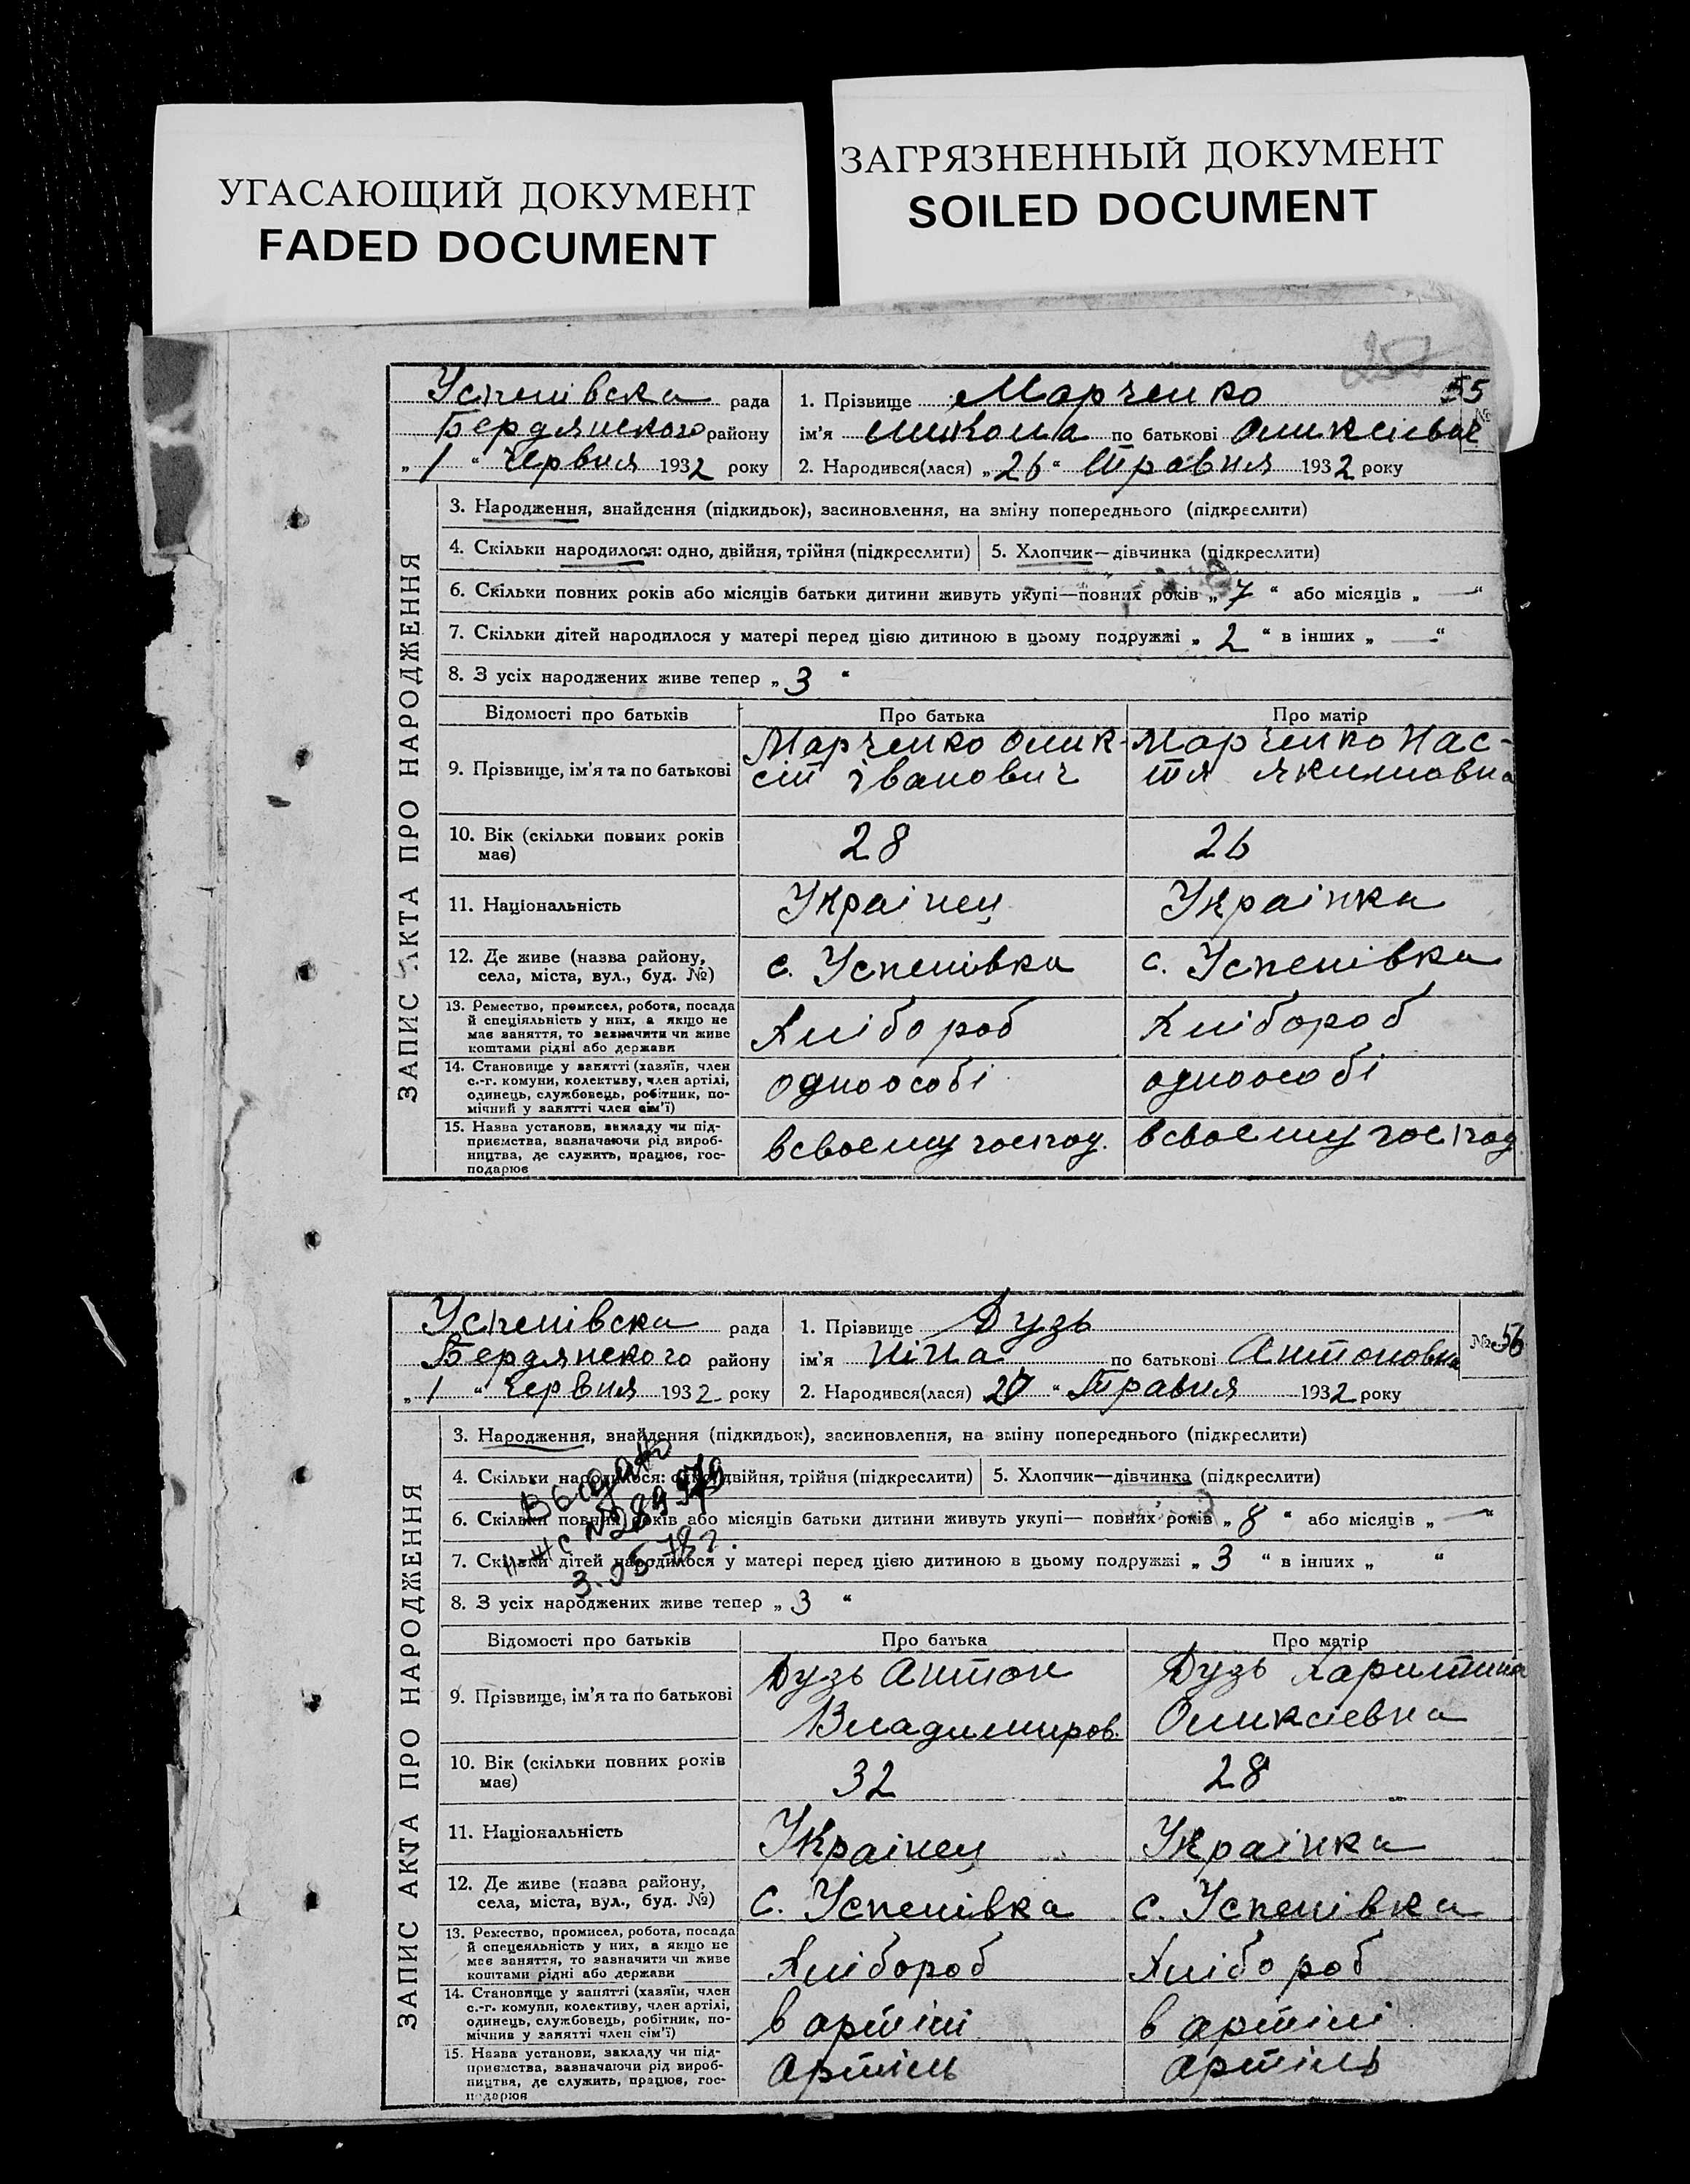 УГАСАЮЩИЙ ДОКУМЕНТ
FADED DOCUMENT
ЗАГРЯЗНЕННЫЙ ДОКУМЕНТ
SOILED DOCUMENT
257
ЗАПИС АКТА ПРО НАРОДЖЕННЯ
Успенівска рада
Бердянского району
„1“ Червня 1932 року
1. Прізвище Марченко
№ 55
ім'я Микола по батькові Оликсієвич
2. Народився(лася) „26“ Травня 1932 року
3. Народження, знайдення (підкидьок), засиновлення, на зміну попереднього (підкреслити)
4. Скільки народилося: одно, двійня, трійня (підкреслити) 5. Хлопчик—дівчинка (підкреслити)
6. Скільки повних років або місяців батьки дитини живуть укупі—повних років „7“ або місяців „—“
7. Скільки дітей народилося у матері перед цією дитиною в цьому подружжі „2“ в інших „—“
8. З усіх народжених живе тепер „3“
Відомості про батьків Про батька Про матір
9. Прізвище, ім'я та по батькові
Марченко Олик-
сій Іванович
Марченко Нас-
тя Якимовна
10. Вік (скільки повних років має) 28 26
11. Національність Украінец Украінка
12. Де живе (назва району, села, міста, вул., буд. №) с. Успенівка с. Успенівка
13. Ремество, промисел, робота, посада
й спеціяльність у них, а якщо не
має заняття, то зазначити чи живе
коштами рідні або держави
Хлібороб Хлібороб
14. Становище у занятті (хазяїн, член
с.-г. комуни, колективу, член артілі,
одинець, службовець, робітник, по-
мічний у занятті член сім'ї)
одноособі одноособі
15. Назва установи, закладу чи під-
приємства, зазначаючи рід вироб-
ництва, де служить, працює, гос-
подарює
в своєму господ. в своєму господ
ЗАПИС АКТА ПРО НАРОДЖЕННЯ
Успенівска рада
Бердянского району
„1“ Червня 1932 року
1. Прізвище Дузь
№ 56
ім'я Ніна по батькові Антоновна
2. Народився(лася) 27“ Травня 1932 року
3. Народження, знайдення (підкидьок), засиновлення, на зміну попереднього (підкреслити)
4. Скільки народилося: одно, двійня, трійня (підкреслити) 5. Хлопчик—дівчинка (підкреслити)
6. Скільки повних років або місяців батьки дитини живуть укупі— повних років „8“ або місяців „—“
7. Скільки дітей народилося у матері перед цією дитиною в цьому подружжі „3“ в інших „ “
8. З усіх народжених живе тепер „3“
Выдано
3.05.78г.
Відомості про батьків Про батька Про матір
9. Прізвище, ім'я та по батькові
Дузь Антон
Владимиров.
Дузь Харитина
Оликсіевна
10. Вік (скільки повних років має) 32 28
11. Національність Украінец Украінка
12. Де живе (назва району, села, міста, вул., буд. №) с. Успенівка с. Успенівка
13. Ремество, промисел, робота, посада
й спецеяльність у них, а якщо не
має заняття, то зазначити чи живе
коштами рідні або держави
Хлібороб Хлібороб
14. Становище у занятті (хазяїн, член
с.-г. комуни, колективу, член артілі,
одинець, службовець, робітник, по-
мічнив у занятті член сім'ї)
в артілі в артілі
15. Назва установи, закладу чи під-
приємства, зазначаючи рід вироб-
ництва, де служить, працює, гос-
подарює
Артіль Артіль